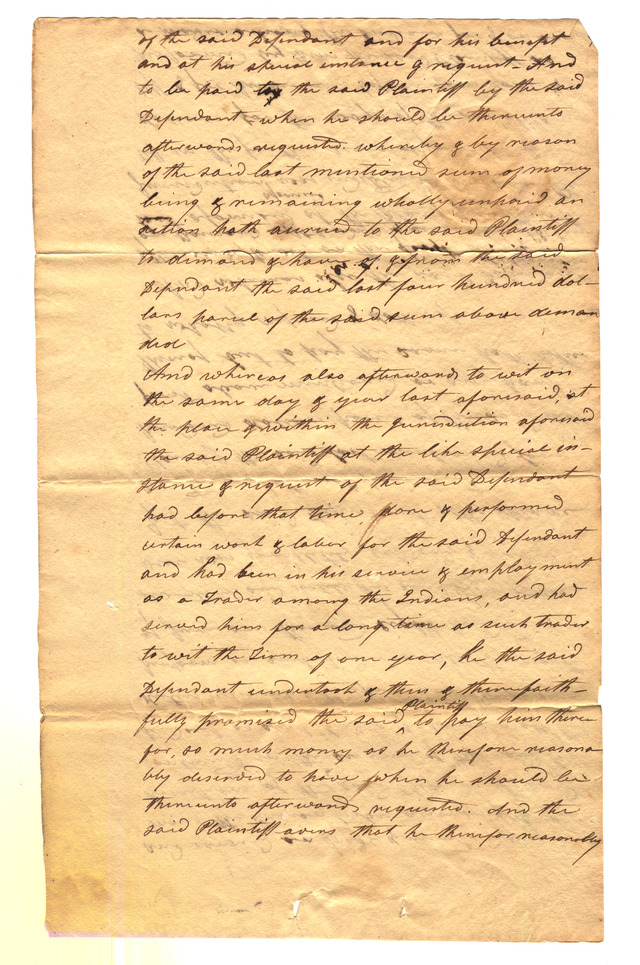 of the said Defendant and for his benefit
and at his special instance & request – And
to be paid to the said Plaintiff by the said
Defendant when he should be thereunto
afterwards requested. whereby & by reason
of the said last mentioned sum of money
being & remaining wholly unpaid an
action hath accrued to the said Plaintiff
to demand & have of & from the said
Defendant the said last four hundred dol-
lars parcel of the said sum above deman
ded
And whereas also afterwards to wit on
the same day & year last aforesaid, at
the place & within the Jurisdiction aforesaid
the said Plaintiff at the like special in-
stance & request of the said Defendant
had before that time, done & performed
certain work & labor for the said Defendant
and had been in his service & employment
as a Trader among the Indians, and had
served him for a long time as such trader
to wit the Term of one year, he the said
Defendant undertook & then & there faith-
fully promised the said ^ Plaintiff to pay him there
for, so much money as he therefore reasona
bly deserved to have when he should be
thereunto afterwards requested. And the
said Plaintiff avers that he therefor reasonably